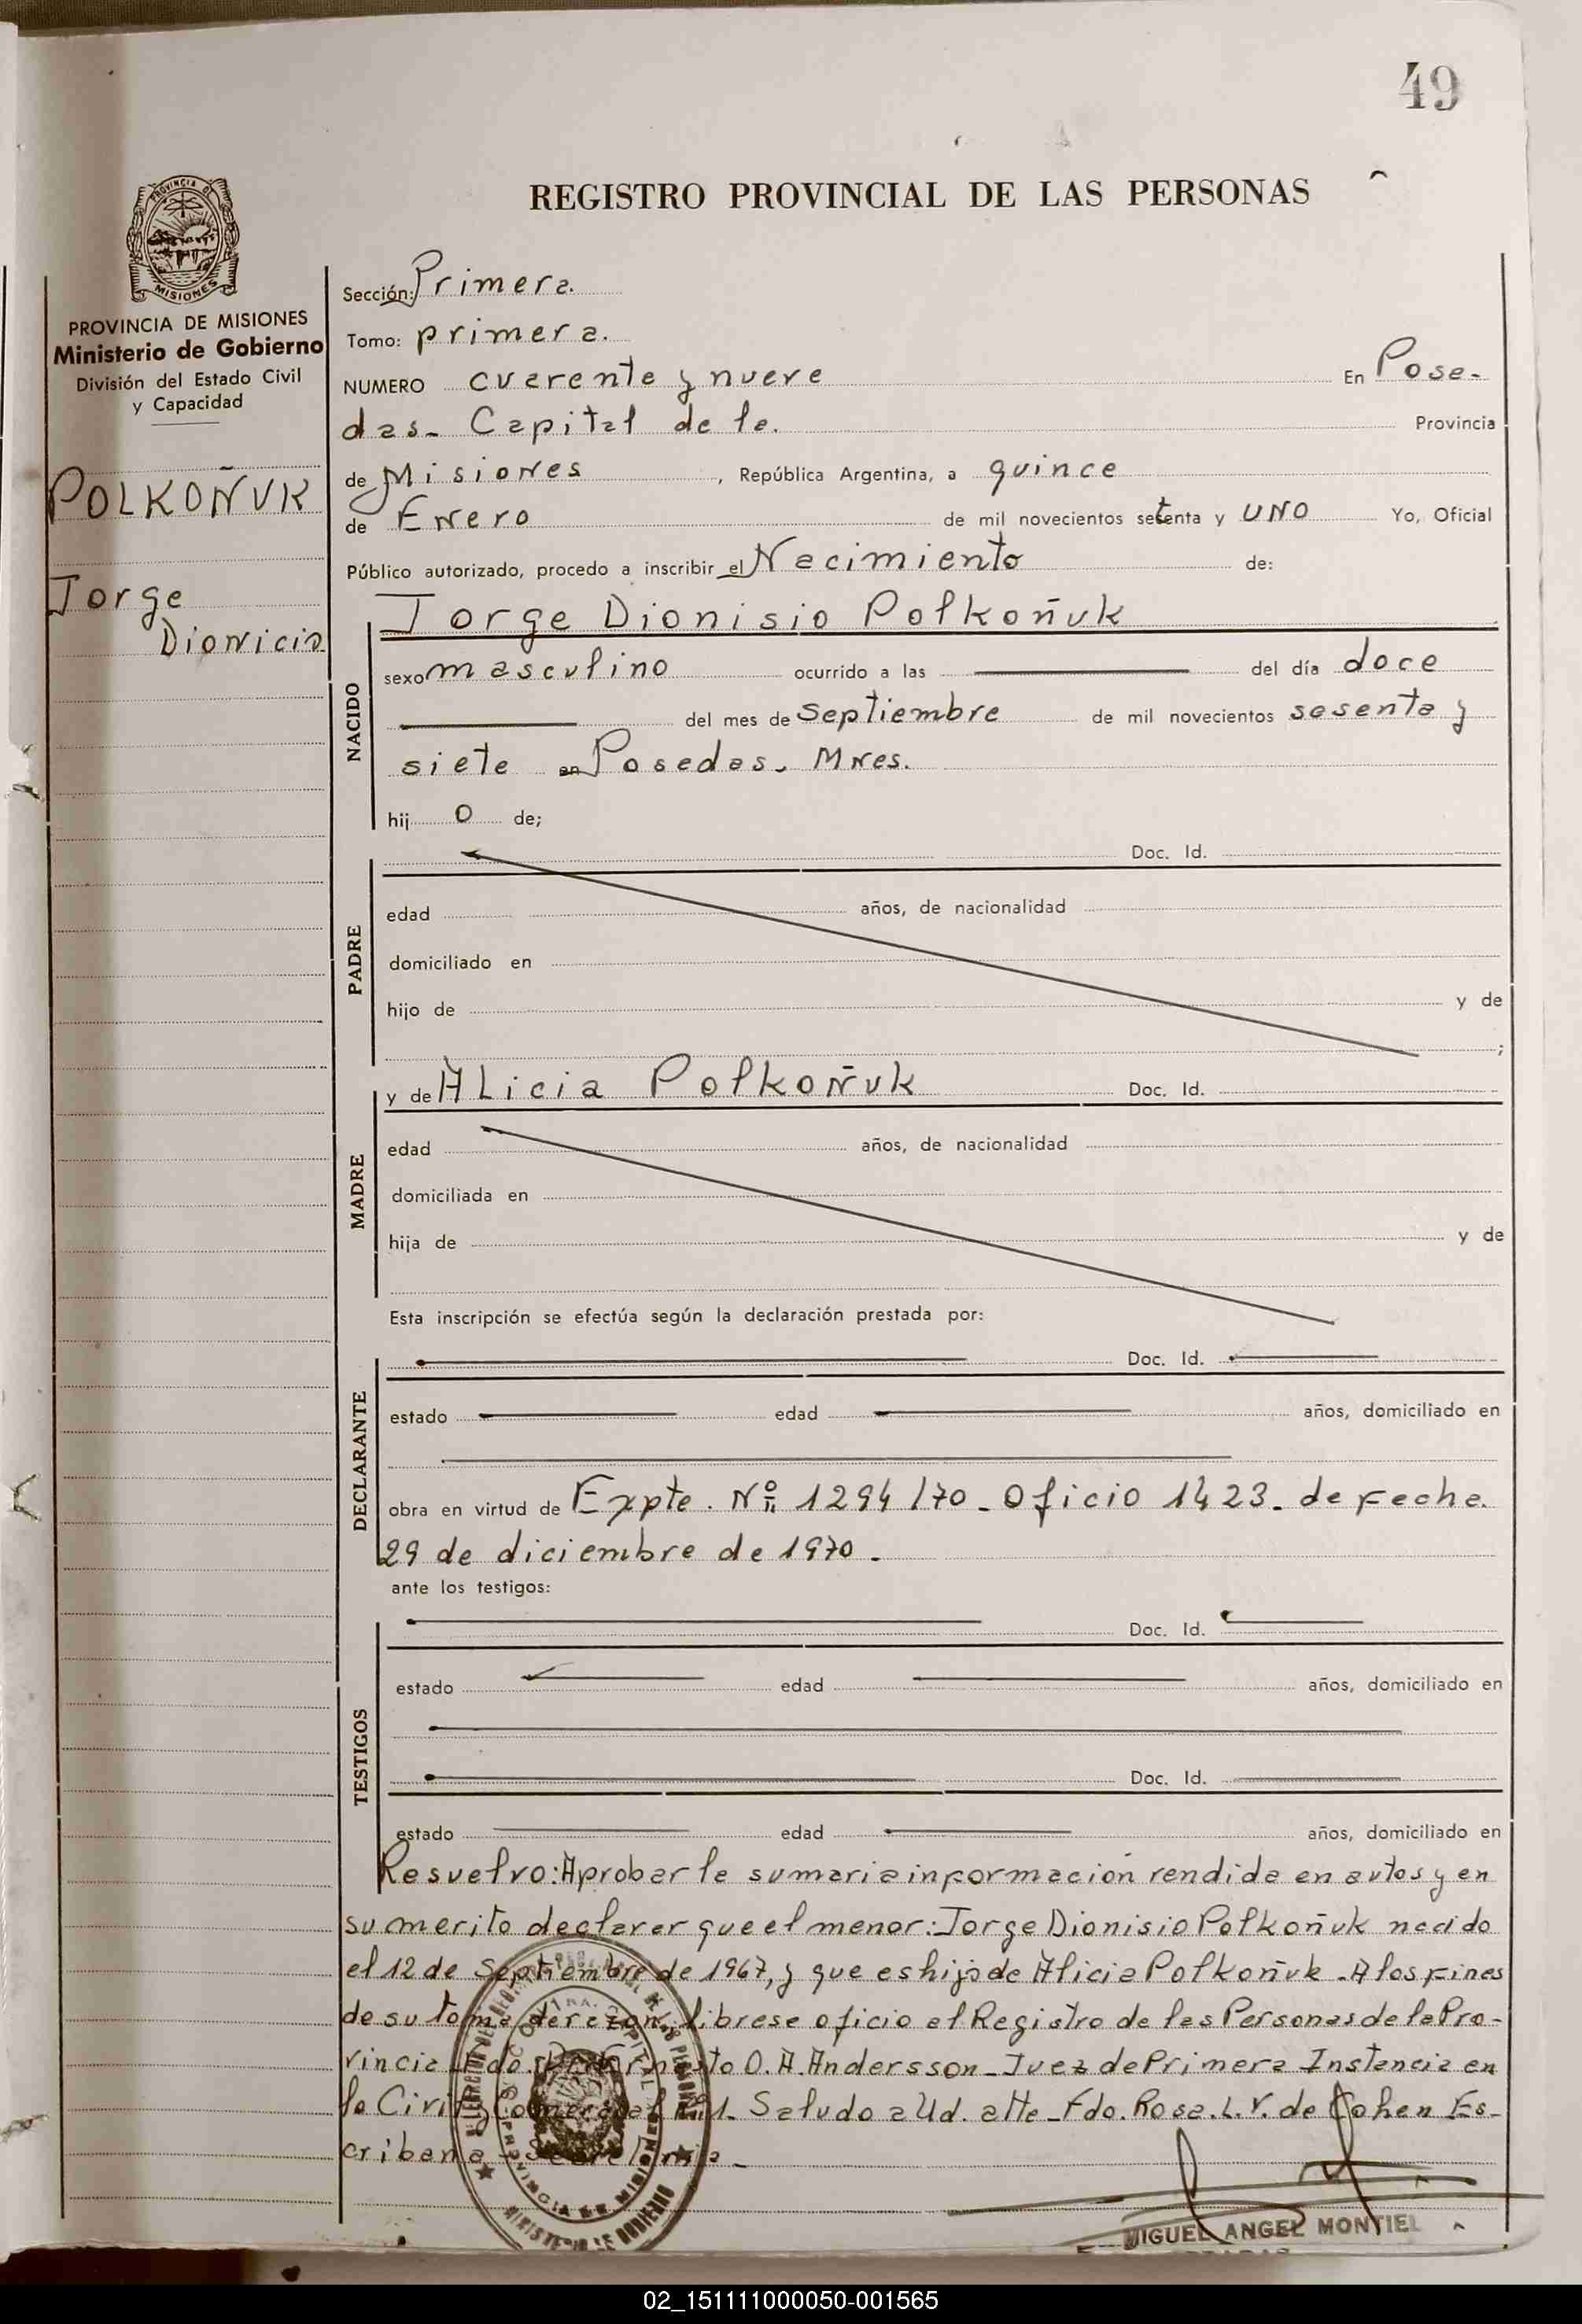 49
REGISTRO PROVINCIAL DE LAS PERSONAS
PROVINCIA DE
MISIONES
PROVINCIA DE MISIONES
Ministerio de Gobierno
División del Estado Civil
y Capacidad
POLKOÑUK
Jorge
Dionicio
Sección: Primera.
Tomo: primera.
NUMERO cuarenta y nueve En Posa-
das- Capital de la. Provincia
de Misiones, República Argentina, a quince
de Enero de mil novecientos setenta y uno Yo, Oficial
Público autorizado, procedo a inscribir el Nacimiento de:
NACIDO
Jorge Dionisio Polkoñuk
sexo masculino ocurrido a las del día doce
del mes de Septiembre de mil novecientos sesenta y
siete en Posadas. Mnes.
hij o de;
PADRE
Doc. Id.
edad años, de nacionalidad
domiciliado en
hijo de y de
;
MADRE
y de Alicia Polkoñuk Doc. Id.
edad años, de nacionalidad
domiciliada en
hija de y de
Esta inscripción se efectúa según la declaración prestada por:
DECLARANTE
Doc. Id.
estado edad años, domiciliado en
obra en virtud de Expte. Nº 1294/70- Oficio 1423- de Fecha.
29 de diciembre de 1970.
ante los testigos:
TESTIGOS
Doc. Id.
estado edad años, domiciliado en
Doc. Id.
estado edad años, domiciliado en
Resuelvo: Aprobar la sumaria informacion rendida en autos y en
su merito declarar que el menor: Jorge Dionisio Polkoñuk nacido
el 12 de Septiembre de 1967, y que es hijo de Alicia Polkoñuk. A los fines
de su toma de razon, librese oficio al Registro de las Personas de la Pro-
vincia Fdo. O. A. Andersson- Juez de Primera Instancia en
lo Civil y Comercial Nº1. Saludo a Ud. atte- Fdo. Rosa. L. V. de Cohen Es-
cribana Secretaria-
MIGUEL ANGEL MONTIEL
02_151111000050-001565